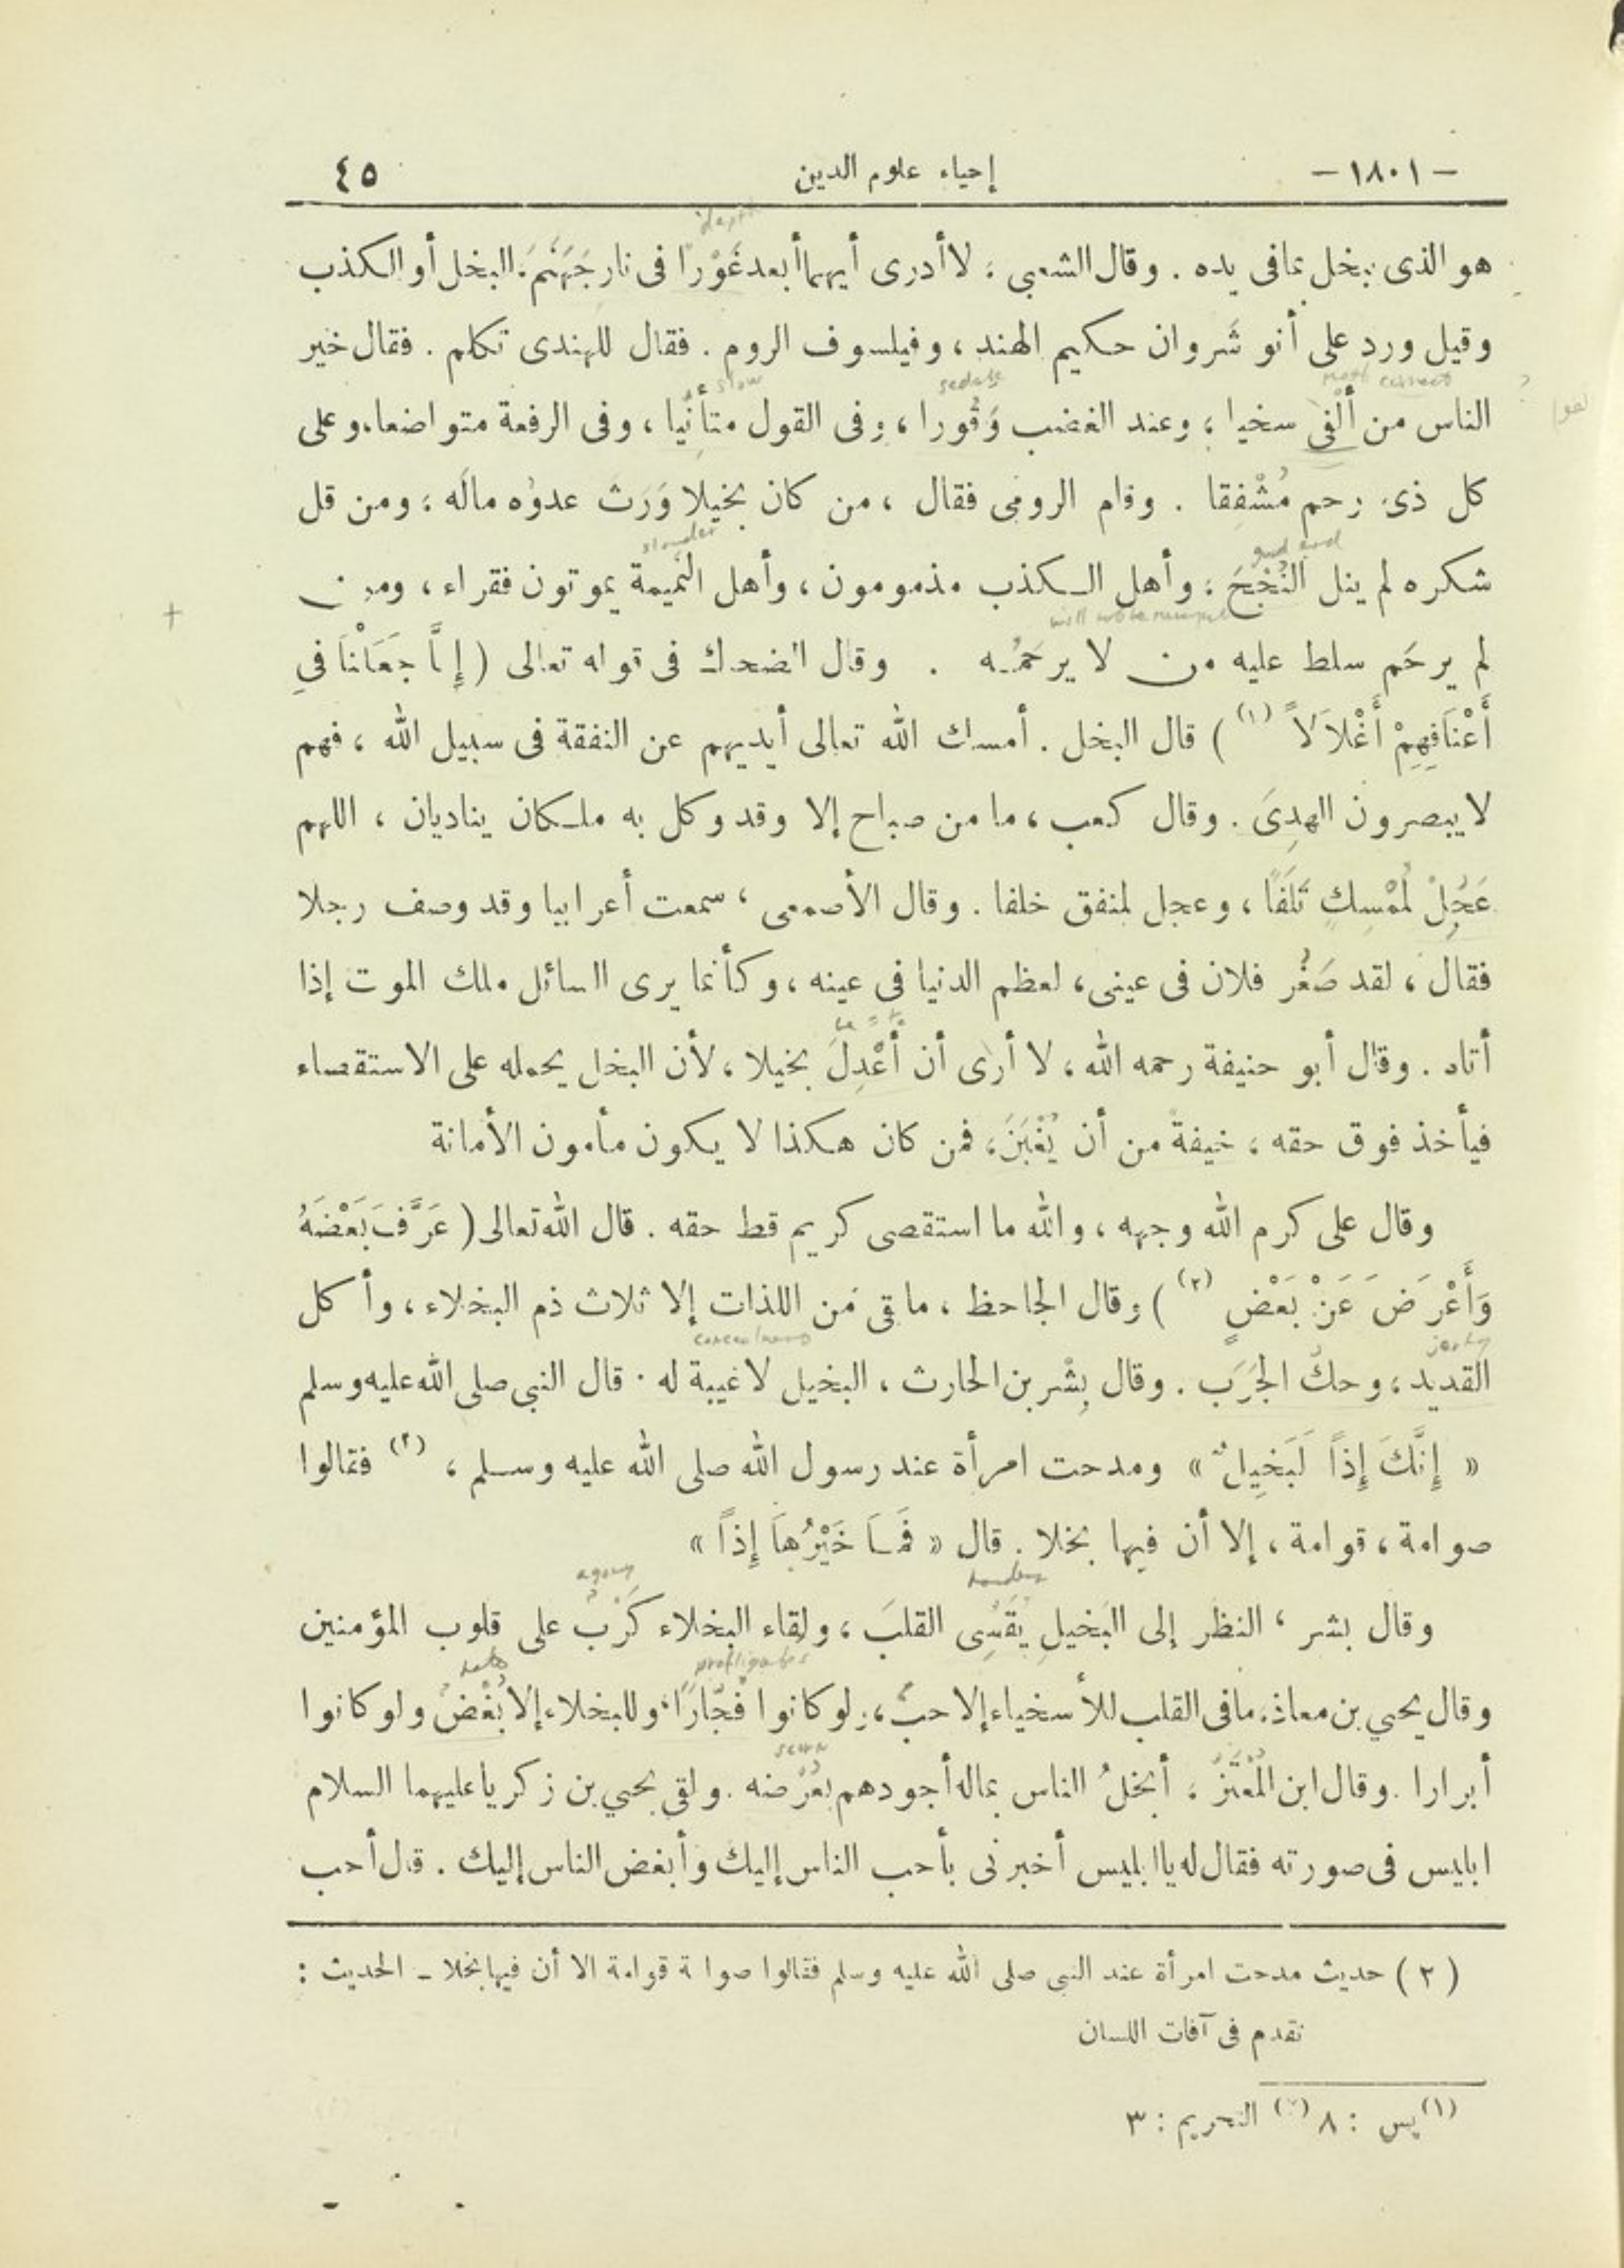 – ١٨٠١ – إحياء علوم الدين ٤٥
هو الذى يبخل بما فى يده . وقال الشعبي ، لا أدرى أيهما أبعد غَوْرًا فى نار جَهَنَّمَ ، البخل أو الكذب
وقيل ورد على أنو شَروان حكيم الهند ، وفيلسوف الروم . فقال للهندى تكلم . فقال خير
الناس من أُلْفِىَ سخيا ، وعند الغضب وَقُورا ، وفى القول متأنِّيا ، وفى الرفعة متواضعا، وعلى
كل ذى رحم مُشْفِقا . وقام الرومى فقال ، من كان بخيلا وَرِثَ عدوُه مالَه ، ومن قل
شكره لم ينل النُّجْحَ ، وأهل الكذب مذمومون ، وأهل النَّمِيمة يموتون فقراء ، ومن
لم يرحَم سلط عليه من لا يرحَمُه . وقال الضحاك فى قوله تعالى ( إِنَّا جَعَلْنَا فِي
أَعْنَاقِهِمْ أَغْلاَلاً (١) ) قال البخل . أمسك الله تعالى أيديهم عن النفقة فى سبيل الله ، فهم
لا يبصرون الهدِىَ . وقال كعب ، ما من صباح إلا وقد وكل به ملكان يناديان ، اللهم
عَجِّلْ لُمْسِكٍ تَلَفًا ، وعجل لمنفق خلفا . وقال الأصمعى ، سمعت أعرابيا وقد وصف رجلا
فقال ، لقد صَغُر فلان فى عينى ، لعظم الدنيا فى عينه ، وكأنما يرى السائل ملك الموت إذا
أتاه . وقال أبو حنيفة رحمه الله ، لا أرى أن أُعْدِلَ بخيلا ، لأن البخل يحمله على الاستقصاء
فيأخذ فوق حقه ، خيفة من أن يُغْبَنَ ، فمن كان هكذا لا يكون مأمون الأمانة
وقال على كرم الله وجهه ، والله ما استقصى كريم قط حقه . قال الله تعالى ( عَرَّفَ بَعْضَهُ
وَأَعْرَضَ عَنْ بَعْضٍ (٢) ) وقال الجاحظ ، ما بقى من اللذات إلا ثلاث ذم البخلاء ، وأكل
القديد ، وحكُّ الجَرَب . وقال بِشْر بن الحارث ، البخيل لا غيبة له . قال النبى صلى الله عليه وسلم
« إِنَّكَ إِذًا لَبَخِيلٌ » ومدحت امرأة عند رسول الله صلى الله عليه وسلم ، (٢) فقالوا
صوامة ، قوامة ، إلا أن فيها بخلا . قال « فَمَا خَيْرُهَا إِذًا »
وقال بشر ، النظر إلى البَخيلِ يُقَسِّى القلبَ ، ولقاء البخلاء كَرْبٌ على قلوب المؤمنين
وقال يحيى بن معاذ، ما فى القلب للأسخياء إلا حبٌ ، ولو كانوا فُجَّارًا ، وللبخلاء إلا بُغْضٌ ولو كانوا
أبرارا . وقال ابن المُعْتَزّ ، أبخلُ الناس بماله أجودهم بعُرْضه . ولقى يحيى بن زكريا عليهما السلام
ابليس فى صورته فقال له يا ابليس أخبرنى بأحب الناس إليك وأبغض الناس إليك . قال أحب
( ٢ ) حديث مدحت امرأة عند النبى صلى الله عليه وسلم فقالوا صوامة قوامة الا أن فيها بخلا ـ الحديث :
تقدم فى آفات اللسان
(١) يس : ٨ (٢) التحريم : ٣